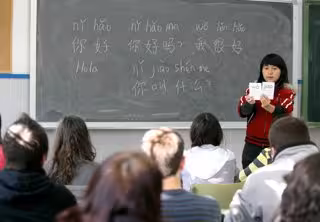 nǐ hǎo nǐ hǎo ma wǒ hěn hǎo
你好 你好吗? 我很好
Hola nǐ jiào shén me
你叫什么?